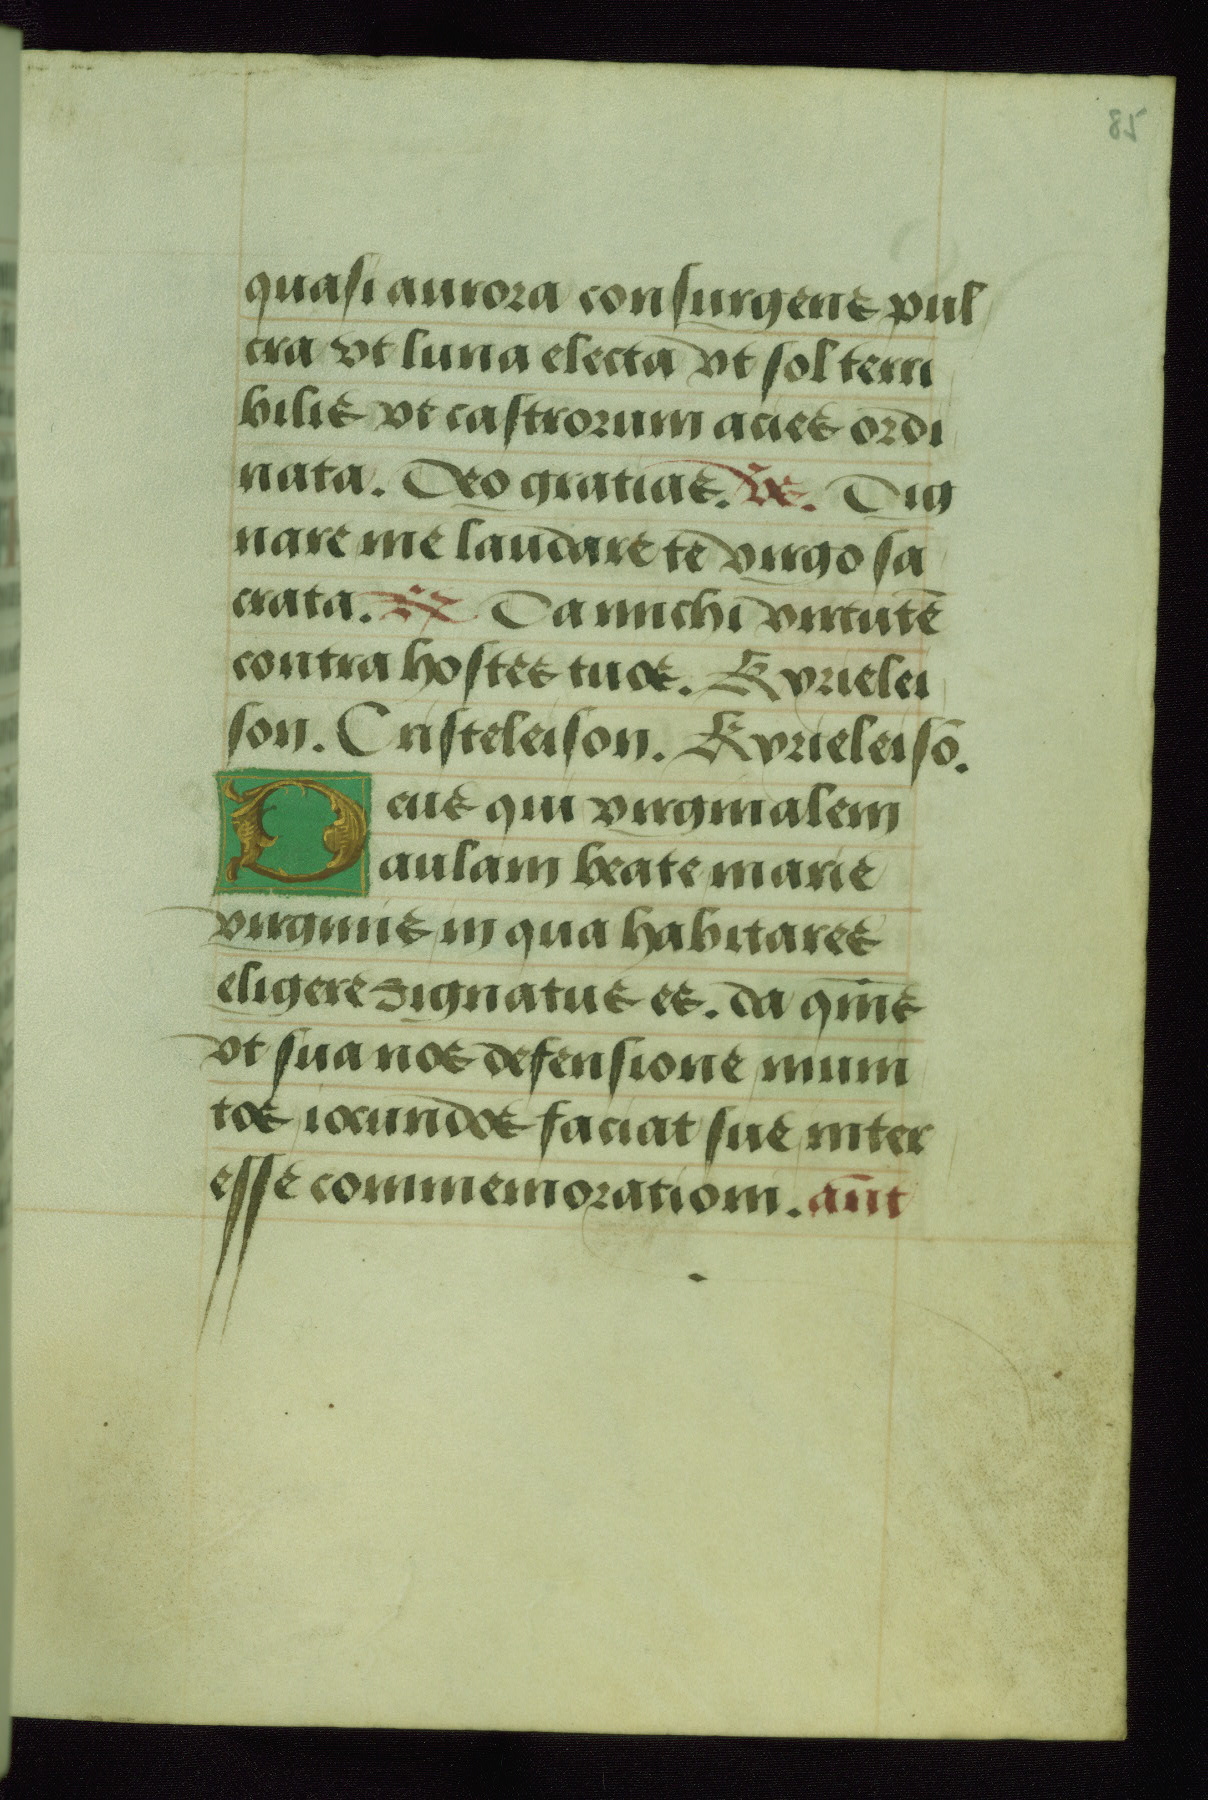 85
quasi aurora consurgens pul
cra vt luna electa vt sol terri
bilis vt castrorum acies ordi
nata. Deo gratias. Vs. Dig
nare me laudare te virgo sa
crata. R Da michi virtutē
contra hostes tuos. Kyrielei
son. Cristeleison. Kyrieleisō.
Deus qui virginalem
aulam beate marie
virginis in qua habitares
eligere dignatus es. da qms̄
vt sua nos defensione muni
tos iocundos faciat sue inter
esse commemorationi. an̄t